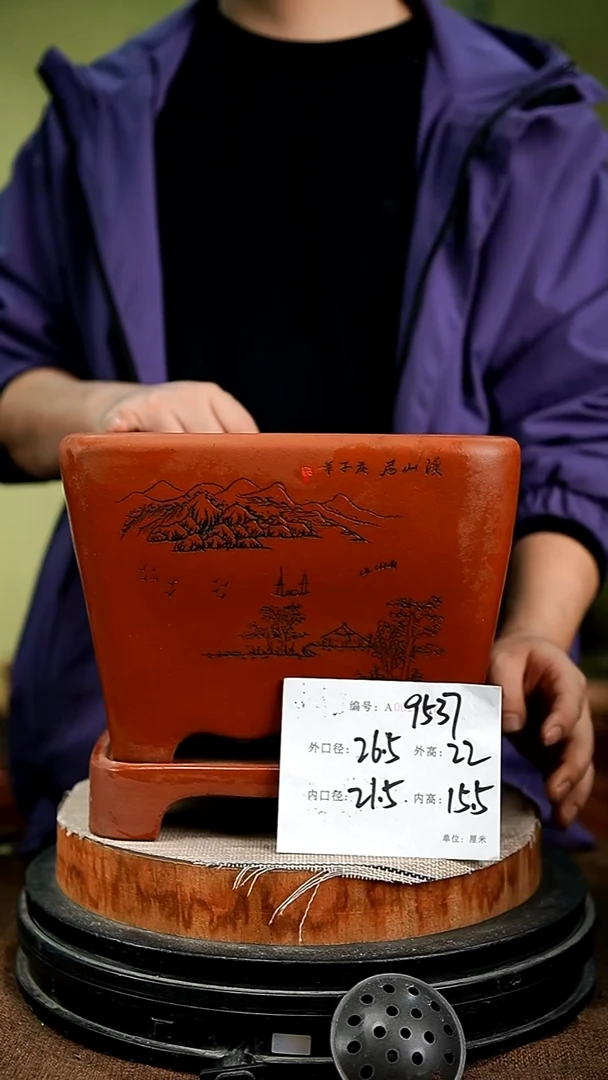 溪山居 庚子
编号: A00 9537
外口径: 26.5 外高: 22
内口径: 21.5 内高: 15.5
单位: 厘米